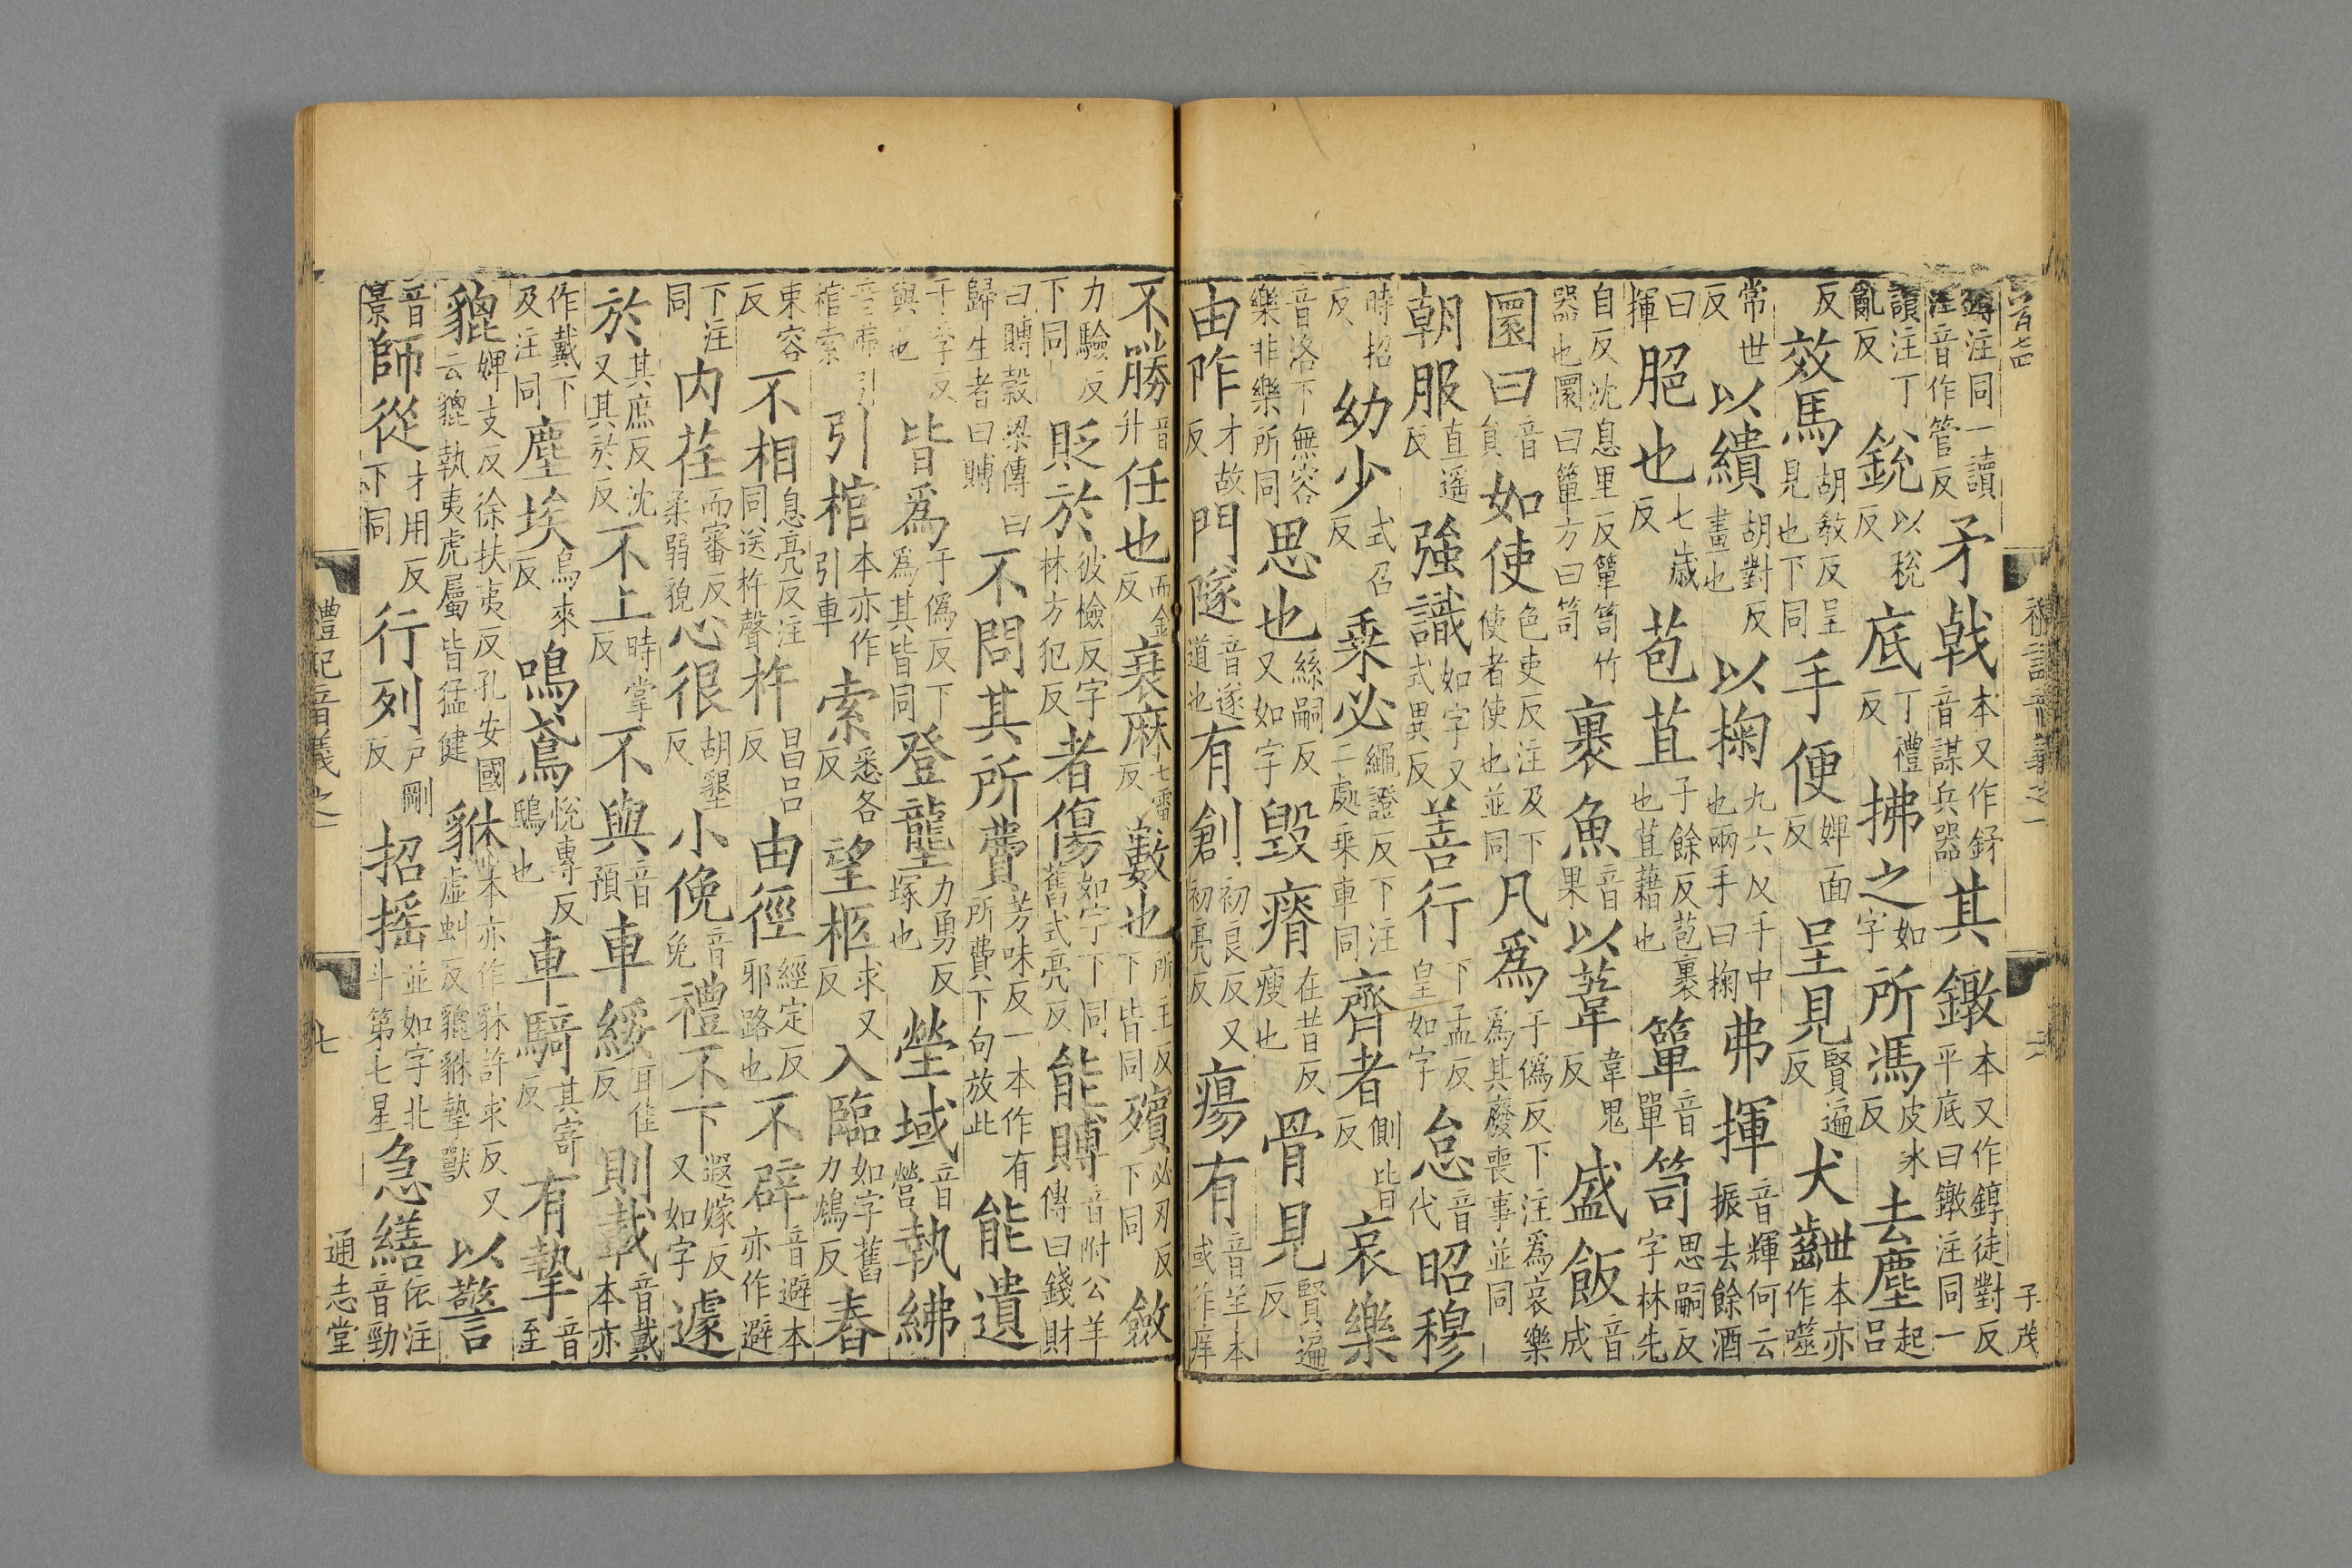 禮記音義之一 子茂
鐏注同一讀注音作管反矛戟本又作釪音謀兵器其鐓本又作錞徒對反平底曰鐓注同一
讀注丁亂反銳以稅反底丁禮反拂之如字所馮皮冰反去塵起呂
反效馬胡教反呈見也下同手便婢面反呈見賢遍反犬齛本亦作噬
常世反以繢胡對反畫也以掬九六反手中也兩手曰掬弗揮音輝何云振去餘酒
曰揮脃也七歲反苞苴子餘反苞裹也苴藉也簞音單笥思嗣反字林先
自反沈息里反簞笥竹器也圜曰簞方曰笥裹魚音果以葦韋鬼反盛飯音成
圜曰音負如使色吏反注及下使者使也並同凡爲于僞反下注爲哀樂爲其廢喪事並同
朝服直遥反強識如字又式異反善行下孟反皇如字怠音代昭穆
時招反幼少式召反乗必繩證反下注二處乗車同齊者側皆反哀樂
音洛下無容樂非樂所同思也絲嗣反又如字毀瘠在昔反瘦也骨見賢遍反
由阼才故反門隧音遂道也有創初良反又初亮反瘍有音羊本或作痒
不勝音升任也而金反衰麻七雷反數也所主反下皆同殯必刃反下同斂
力驗反下同貶於彼檢反字林方犯反者傷如字下同舊式亮反能賻音附公羊傳曰錢財
曰賻穀梁傳曰歸生者曰賻不問其所費芳味反一本作有所費下句放此能遺
于季反與也皆爲于僞反下爲其皆同登壟力勇反塚也塋域音營執紼
音弗引棺索引棺本亦作引車索悉各反望柩求又反入臨如字舊力鴆反舂
束容反不相息亮反注同送杵聲杵昌呂反由徑經定反邪路也不辟音避本亦作避
下注同內荏而審反柔弱貌心很胡墾反小俛音免禮不下遐嫁反又如字遽
於其庶反沈又其於反不上時掌反不與音預車綏耳佳反則載音戴本亦
作戴下及注同塵埃烏來反鳴鳶悅專反鴟也車騎其寄反有摯音至
貔婢支反徐扶夷反孔安國云貔執夷虎屬皆猛健貅本亦作貅許求反又虛虯反貔貅摯獸以警
音景師從才用反下同行列戶剛反招摇並如字北斗第七星急繕依注音勁
禮記音義之一 七 通志堂